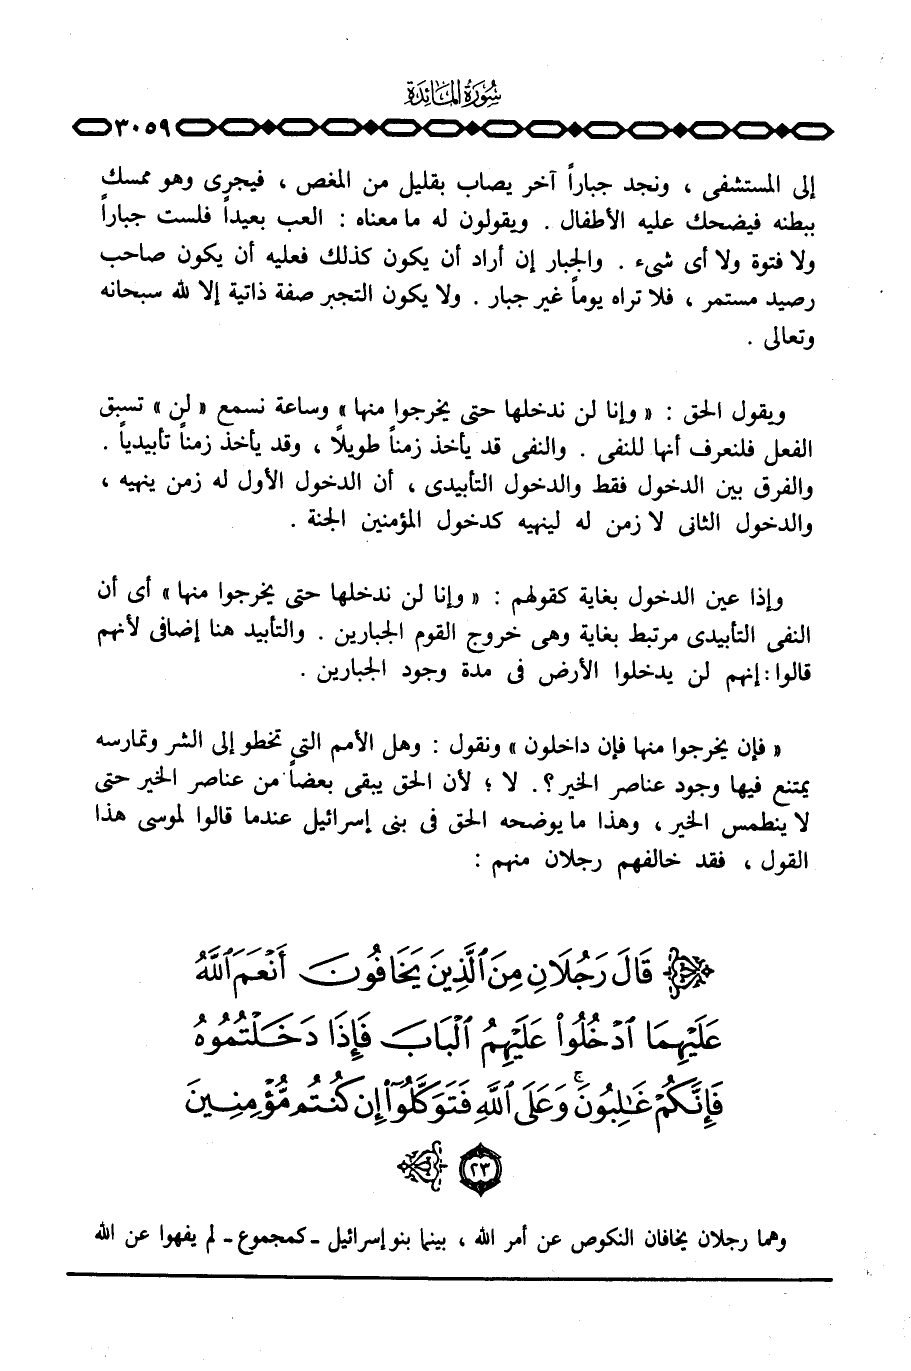 سُورَةُ المَائِدَة
٣٠٥٩
إلى المستشفى ، ونجد جباراً آخر يصاب بقليل من المغص ، فيجرى وهو ممسك
ببطنه فيضحك عليه الأطفال . ويقولون له ما معناه : العب بعيداً فلست جباراً
ولا فتوة ولا أى شىء . والجبار إن أراد أن يكون كذلك فعليه أن يكون صاحب
رصيد مستمر ، فلا تراه يوماً غير جبار . ولا يكون التجبر صفة ذاتية إلا لله سبحانه
وتعالى .
ويقول الحق : « وإنا لن ندخلها حتى يخرجوا منها » وساعة نسمع « لن » تسبق
الفعل فلنعرف أنها للنفى . والنفى قد يأخذ زمناً طويلاً ، وقد يأخذ زمناً تأبيدياً .
والفرق بين الدخول فقط والدخول التأبيدى ، أن الدخول الأول له زمن ينهيه ،
والدخول الثانى لا زمن له لينهيه كدخول المؤمنين الجنة .
وإذا عين الدخول بغاية كقولهم : « وإنا لن ندخلها حتى يخرجوا منها » أى أن
النفى التأبيدى مرتبط بغاية وهى خروج القوم الجبارين . والتأبيد هنا إضافى لأنهم
قالوا : إنهم لن يدخلوا الأرض فى مدة وجود الجبارين .
« فإن يخرجوا منها فإن داخلون » ونقول : وهل الأمم التى تخطو إلى الشر وتمارسه
يمتنع فيها وجود عناصر الخير ؟. لا ؛ لأن الحق يبقى بعضاً من عناصر الخير حتى
لا ينطمس الخير ، وهذا ما يوضحه الحق فى بنى إسرائيل عندما قالوا لموسى هذا
القول ، فقد خالفهم رجلان منهم :
قَالَ رَجُلَانِ مِنَ ٱلَّذِينَ يَخَافُونَ أَنْعَمَ ٱللَّهُ
عَلَيْهِمَا ٱدْخُلُوا۟ عَلَيْهِمُ ٱلْبَابَ فَإِذَا دَخَلْتُمُوهُ
فَإِنَّكُمْ غَٰلِبُونَ ۚ وَعَلَى ٱللَّهِ فَتَوَكَّلُوٓا۟ إِن كُنتُم مُّؤْمِنِينَ
٢٣
وهما رجلان يخافان النكوص عن أمر الله ، بينما بنو إسرائيل ـ كمجموع ـ لم يفهوا عن الله